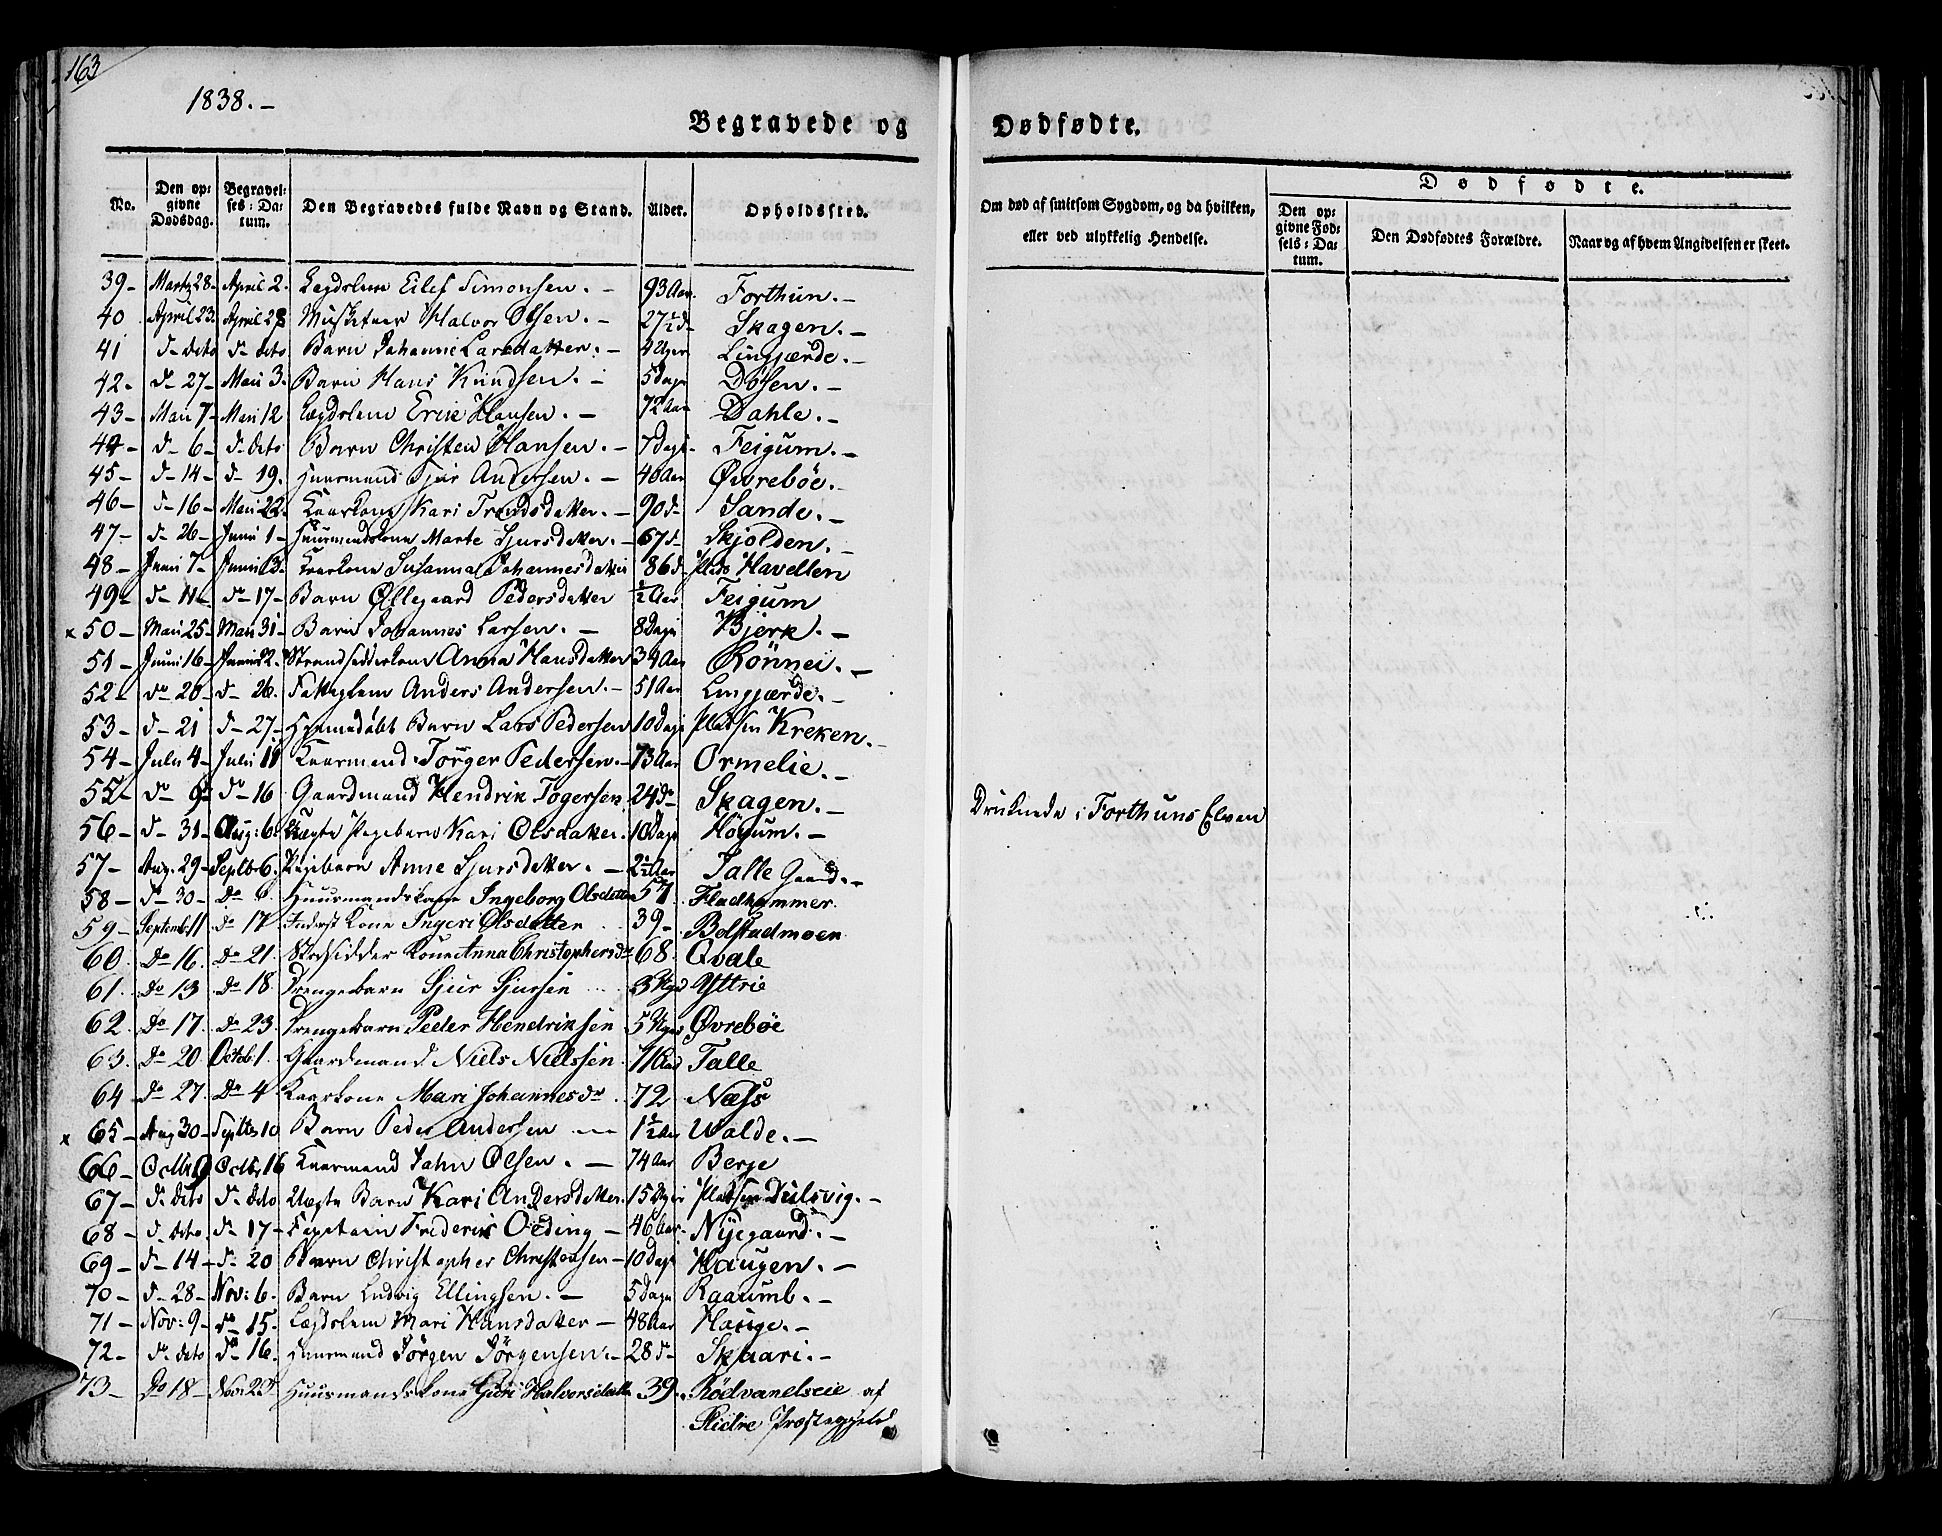 163
1838. –
Begravede og Dødfødte.
No. | Den opgivne Dødsdag. | Begravelses-Datum. | Den Begravedes fulde Navn og Stand. | Alder. | Opholdssted. | Om død af smitsom Sygdom, og da hvilken, eller ved ulykkelig Hendelse. | Dødfødte. | Den opgivne Fødsels-Datum. | Den Dødfødtes Forældre. | Naar og af hvem Angivelsen er skeet.
39 – Martz 28 – April 2. Lægdslem Eilef Simonsen. – 93 Aar. Forthun. –
40 April 23. April 28 Musketeer Halvor Olsen. – 27½ d– Skagen. –
41 d– dito d– dito Barn Johanne Larsdatter. – 4 Uger Lingjærde. –
42. d– 27 – Maii 3. Barn Hans Knudsen. – 5 Dage Døsen. –
43 – Maii 7 – Maii 12 Lægdslem Erik Hansen. – 72 Aar Dahle. –
44 – d– 6 – d– dito Barn Christen Hansen. – 7 Dage – Feigum. –
45 – d– 14 – d– 19. Huusmand Sjur Andersen. – 46 Aar Øvrebøe. –
46 – d– 16 – Maii 22. Kaarkone Kari Trondsdatter. – 90 d– Sande. –
47 – d– 26 – Junii 1 – Huusmandskone Marte Sjursdatter. – 67 d– Skjolden. –
48 – Junii 7 – Junii 13. Kaarkone Susanna Johannesdatter 86 d– Plads Havellen
49 – d– 11 – d– 17 – Barn Øllegaard Pedersdatter ½ Aar Feigum
x 50 – Maii 25 – Maii 31 – Barn Johannes Larsen. – 8 Dage Bjerk. –
51 – Junii 16 – Junii 22. Strandsidderkone Anna Hansdatter 34 Aar Rönnei. –
52 – do 20 – d– 26. Fattiglem Anders Andersen. – 51 Aar Lingjærde. –
53 – d– 21 d– 27 – Hjemedøbt Barn Lars Pedersen 10 Dage Pladsen Kreken. –
54 – Julii 4 – Julii 11 Kaarmand Törger Pedersen. – 73 Aar Ormelie. –
55 – do 9 – do – 16 Gaardmand Hendrik Togersen 24 do Skagen. – Druknede i Forthuns Elven
56 – d– 31 – Aug: 6. Uægte Pigebarn Kari Olsdatter. 10 Dage Högum. –
57 – Aug. 29 – Septb 6. Pigebarn Anne Sjursdatter. – 2½ Aar Talle Gaard. –
58 – d– 30 – Do 6 Huusmandskone Ingeborg Olsdatter 57. Fladhammer.
59 – Septemb 11 do 17 Inderst Kone Ingeri Olsdatter 39 – Bolstadmoen
60. Do 16. Do 21. Strdsidder Kone Anna Christophersdr 68. Qvale
61. Do 13 Do 18. Drengebarn Sjur Sjursen 3 Uger Yttrie
62. Do 17. do 23. Drengebarn Peder Hendriksen 5 Uger Øvrebøe
63. Do 20. Octob 1. Gaardmand Niels Nielssen. 71 Aar Talle
64 – do 27. Do 4 Kaarkone Mari Johannesdr. 72 Næss
x 65 – Aug 30 – Septbr 10 Barn Peder Andersen – 1½ Aar Walde. –
66 – Octbr 9 Octbr 16 Kaarmand Jahn Olsen. – 74 Aar Berge
67 – d– dito d– dito Uægte Barn Kari Andersdatter. 15 Uger Pladsen Dulsvig. –
68 – d– dito. d– 17 – Capitain Friderik Oeding – 46 Aar – Nyegaard. –
69 – d– 14 – d– 20 Barn Christopher Christensen – 10 Dage Haugen. –
70 – d– 28 – Nov: 6. Barn Ludvig Ellingsen. – 5 Dage Raaumb. –
71 – Nov: 9 – do 15. Lægdslem Mari Hansdatter – 48 Aar Hauge. –
72 – d– dito do 16. Huusmand Jörgen Jörgensen. – 28 d– Skaari. –
73 – Do 18 – Nov: 23 Huusmandskone Guri Halvorsdatter 39. Rödvandseie af
Slidre Præstegjeld